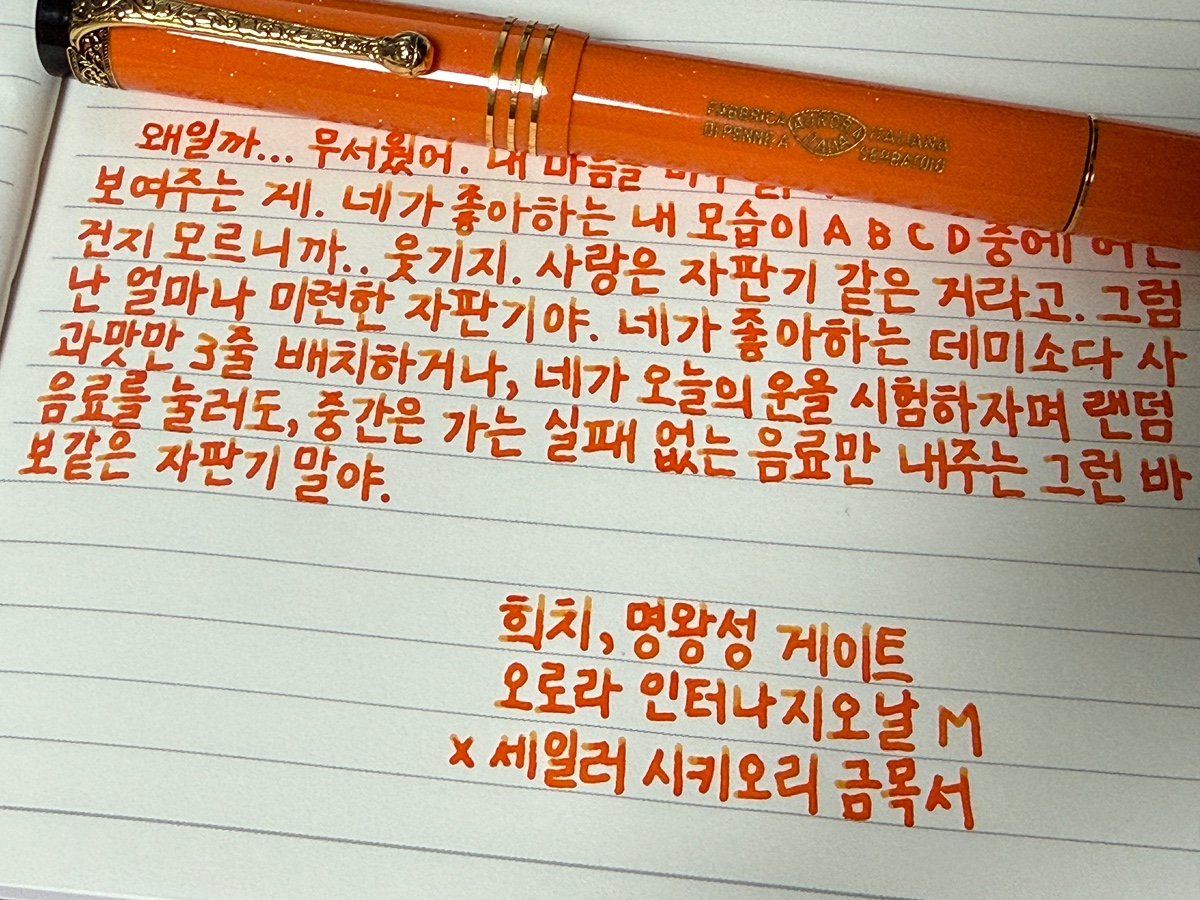 FABBRICA AURORA ITALIANA
DI PENNE A SERBATOIO
왜일까... 무서웠어. 내 마음을
보여주는 게. 네가 좋아하는 내 모습이 A B C D 중에 어떤
건지 모르니까.. 웃기지. 사랑은 자판기 같은 거라고. 그럼
난 얼마나 미련한 자판기야. 네가 좋아하는 데미소다 사
과맛만 3줄 배치하거나, 네가 오늘의 운을 시험하자며 랜덤
음료를 눌러도, 중간은 가는 실패 없는 음료만 내주는 그런 바
보같은 자판기 말야.
희치, 명왕성 게이트
오로라 인터나지오날 M
x 세일러 시키오리 금목서